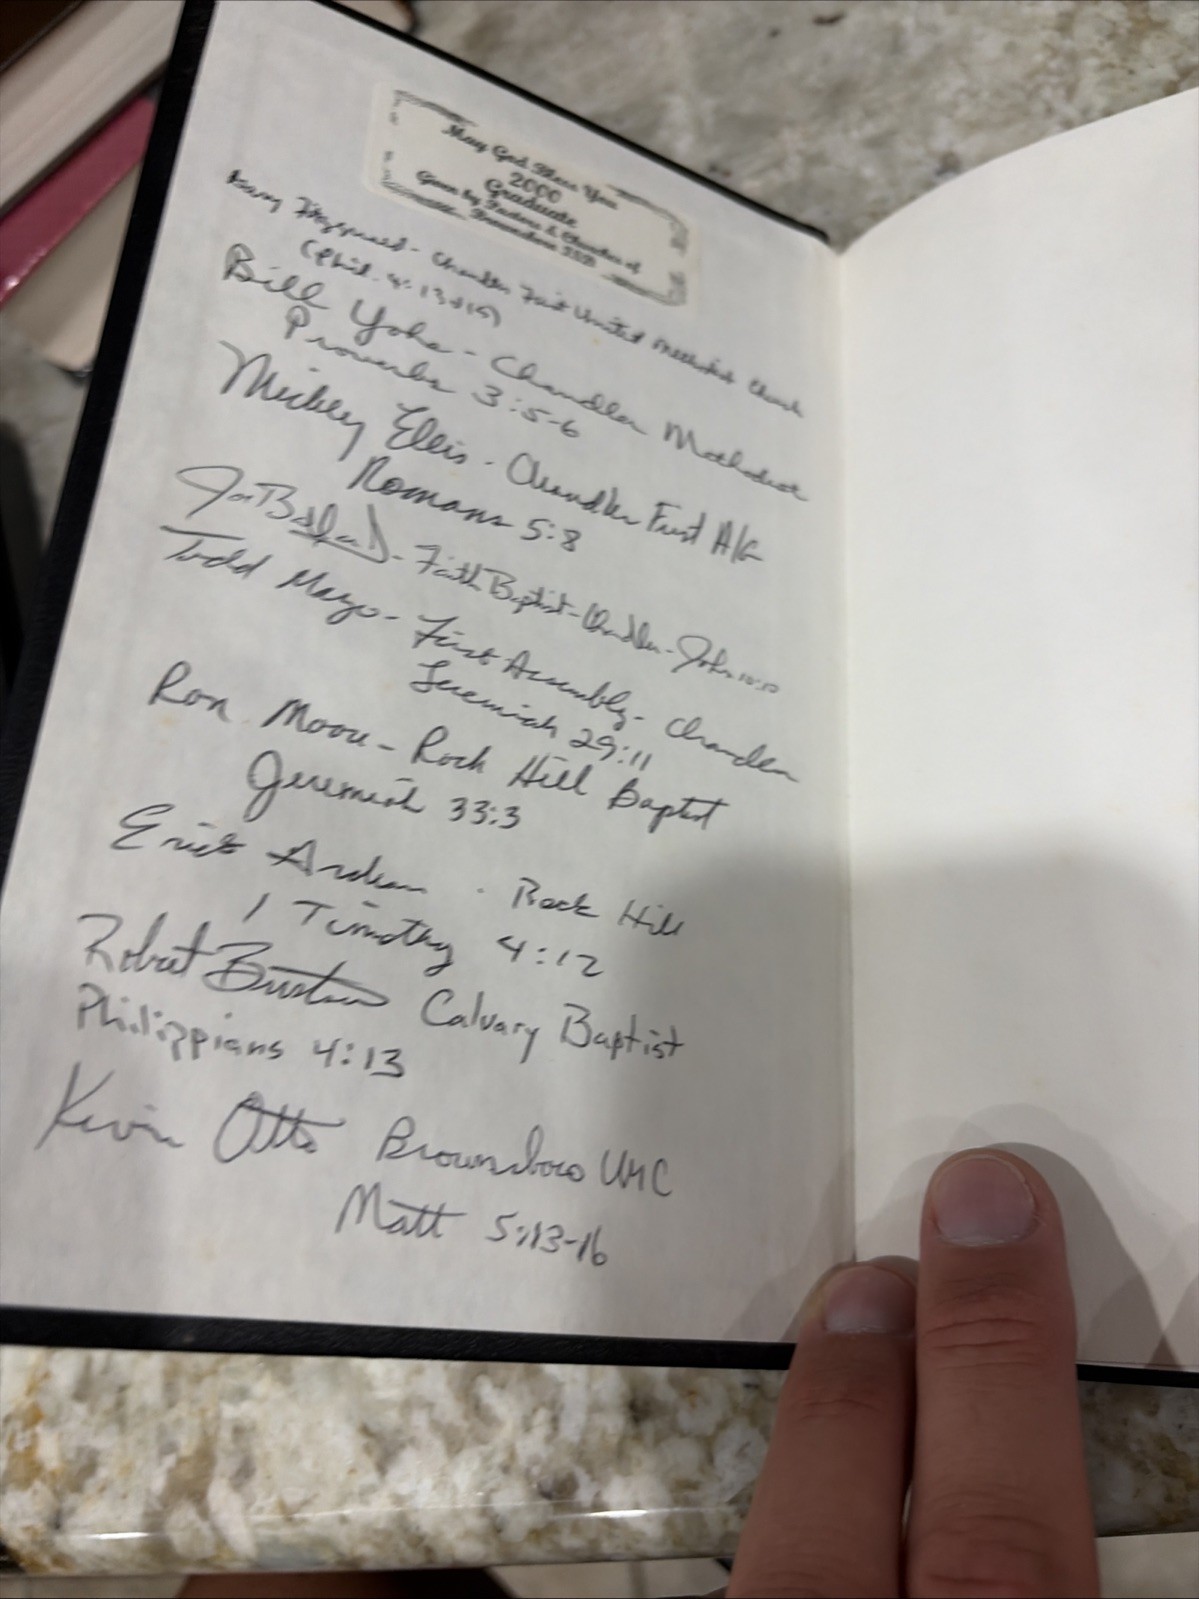 May God Bless You
2000
Graduate
Given by Pastors & Churches of
Brownsboro ISD
Fitzgerald - Chandler First United Methodist Church
(Phil. 4:13+19)
Bill Yoho - Chandler Methodist
Proverbs 3:5-6
Mickey Ellis - Chandler First A/G
Romans 5:8
Joe - Faith Baptist - Chandler - John 10:10
Todd Mayo - First Assembly - Chandler
Jeremiah 29:11
Ron Moore - Rock Hill Baptist
Jeremiah 33:3
Erick - Rock Hill
1 Timothy 4:12
Robert Calvary Baptist
Philippians 4:13
Kevin Otto Brownsboro UMC
Matt 5:13-16